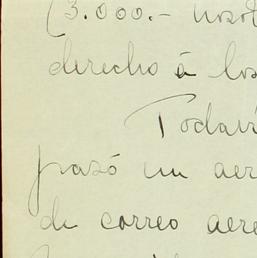 (3.000.- nosot
derecho á los
Todaví
pasó un aer
de correo aére